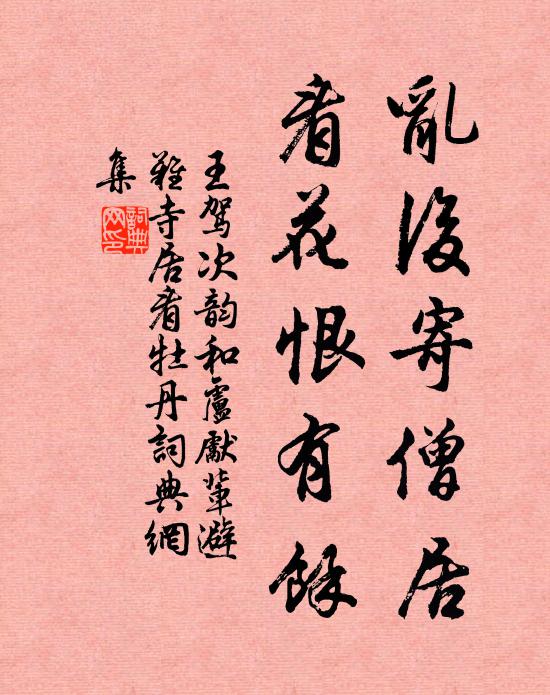 亂後寄僧居
看花恨有餘
王駕次韵和盧獻輩避
難寺居看牡丹詞典網
集
詞典
网印